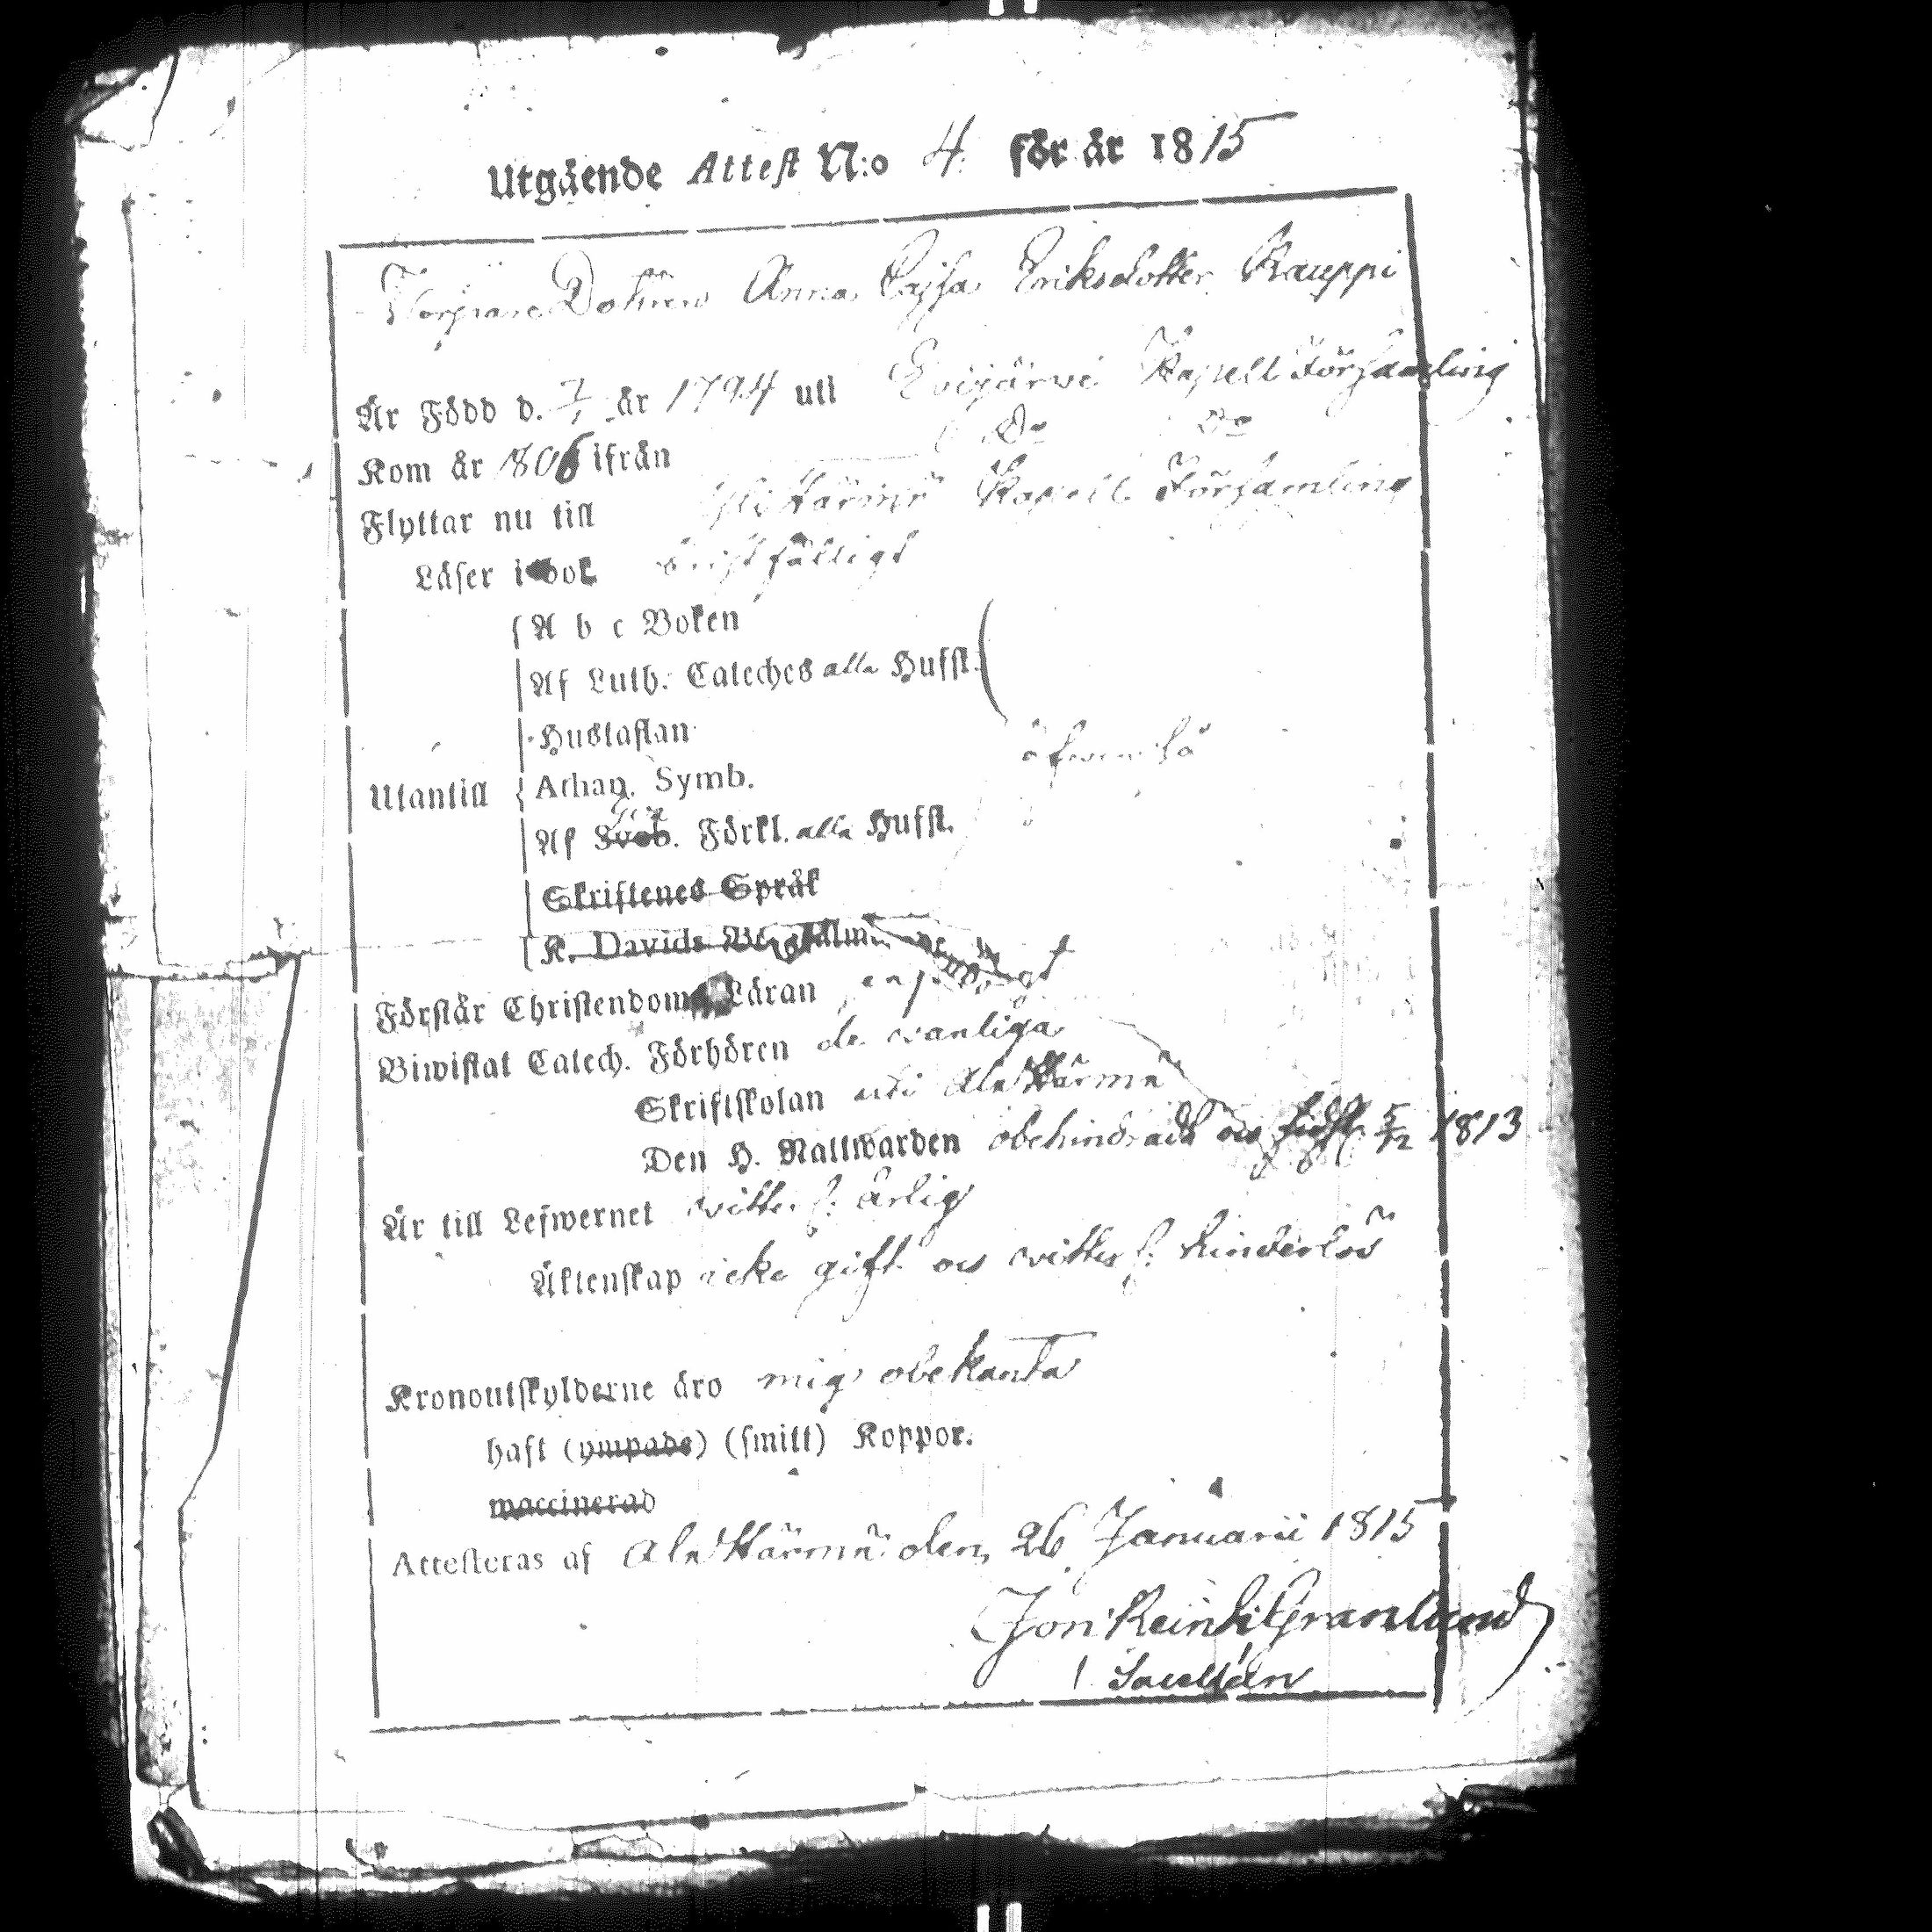 Utgående Attest N:o 4. för år 1815
Torpare Dottren Anna Cajsa Eriksdotter Kauppi
Är Född d. 7/1 år 1794 uti Evijärvi Kapell Församling
Kom år 1806 ifrån Do Do
Flyttar nu till Härmä Kapell Församling
Läser i bok bristfälligt
A b c Boken
Af Luth. Cateches alla Hufst.
Hustaflan
Utantill
Athan. Symb.
Af Sveb. Förkl. alla Hufst.
äfwen så
Skriftenes Språk
K. Davids
Förstår Christendoms Läran
Biwistat Catech. Förhören de wanliga
Skriftskolan uti Ala Härmä
Den H. Nattwarden obehindrad oc sidst 5/12 1813
Är till Lefwernet witter l: ärlig
Äktenskap icke gift oc witter l: hinderlös
Kronoutskylderne äro mig obekanta
haft (ympade) (smitt) Koppor.
waccinerad
Attesteras af Ala Härmä den 26 Januarii 1815
Jon Reinh Granlund
Sacellan